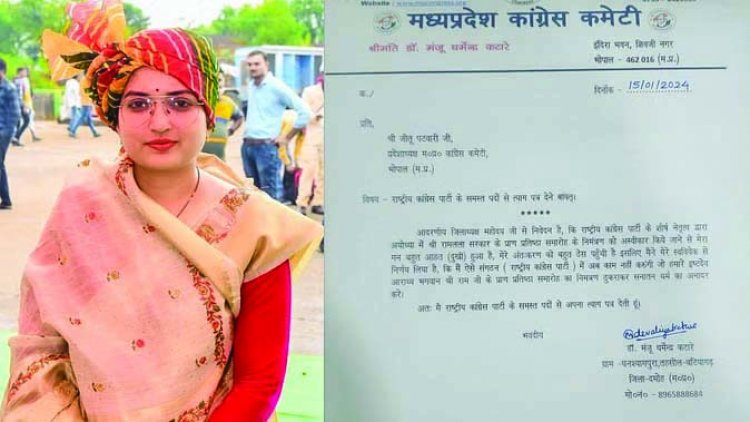 Website
मध्यप्रदेश कांग्रेस कमेटी
श्रीमति डॉ. मंजू धर्मेन्द्र कटारे
इंदिरा भवन, शिवजी नगर
भोपाल - 462 016 (म.प्र.)
क्र./
दिनाँक - 15/01/2024
प्रति,
श्री जीतू पटवारी जी,
प्रदेशाध्यक्ष म०प्र० कांग्रेस कमेटी,
भोपाल (म.प्र.)
विषय - राष्ट्रीय कांग्रेस पार्टी के समस्त पदों से त्याग पत्र देने बाबत्।
*****
आदरणीय जिलाध्यक्ष महोदय जी से निवेदन है, कि राष्ट्रीय कांग्रेस पार्टी के शीर्ष नेतृत्व द्वारा
अयोध्या में श्री रामलला सरकार के प्राण प्रतिष्ठा समारोह के निमंत्रण को अस्वीकार किये जाने से मेरा
मन बहुत आहत (दुखी) हुआ है, मेरे अंतःकरण को बहुत ठेस पहुँची है इसलिए मैंने मेरे स्वविवेक से
निर्णय लिया है, कि मैं ऐसे संगठन ( राष्ट्रीय कांग्रेस पार्टी ) में अब काम नहीं करूंगी जो हमारे इष्टदेव
आराध्य भगवान श्री राम जी के प्राण प्रतिष्ठा समारोह का निमंत्रण ठुकराकर सनातन धर्म का अनादर
करे।
अतः मैं राष्ट्रीय कांग्रेस पार्टी के समस्त पदों से अपना त्याग पत्र देती हूं।
भवदीय
डॉ. मंजू धर्मेन्द्र कटारे
ग्राम -घनश्यामपुरा,तहसील-बटियागढ़
जिला-दमोह (म०प्र०)
मो०नं० - 8965888684